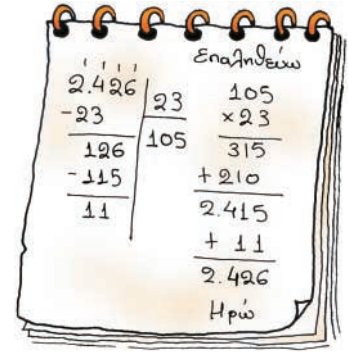 2.426 23
-23 105
126
-115
11
Επαληθεύω
105
×23
315
+210
2.415
+ 11
2.426
Ηρώ